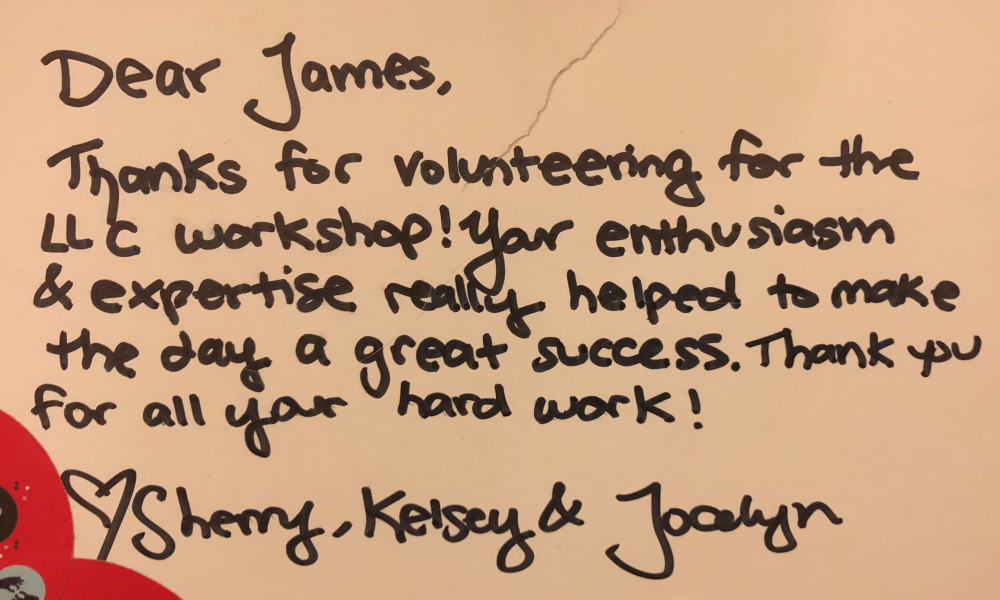 Dear James,
Thanks for volunteering for the
LLC workshop! Your enthusiasm
& expertise really helped to make
the day a great success. Thank you
for all your hard work!
♡ Sherry, Kelsey & Jocelyn